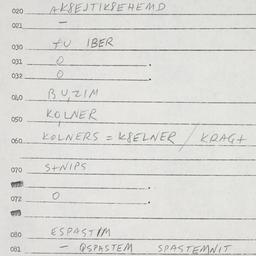 020 AK8EJTIK8EHEMD
021 —
030 fU IBER
031 O .
032 O .
040 BUZIM
050 KOLNER
060 KOLNERS = K8ELNER / KRAGt
070 StNIPS
.
072 O .
080 ESPASTIM
081 — QSPASTEM SPASTEMNIT